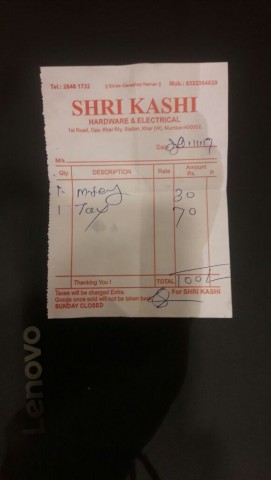 Tel.: 2648 1732 || Shree Ganeshay Namah || Mob.:
SHRI KASHI
HARDWARE & ELECTRICAL
1st Road, Opp. Khar Rly. Station, Khar (W), Mumbai-400052.
Date
M/s.
Qty. DESCRIPTION Rate Amount
Rs. P.
30
1 70
Thanking You ! TOTAL 100/-
Taxes will be charged Extra.
Goods once sold will not be taken back
SUNDAY CLOSED
For SHRI KASHI
Lenovo